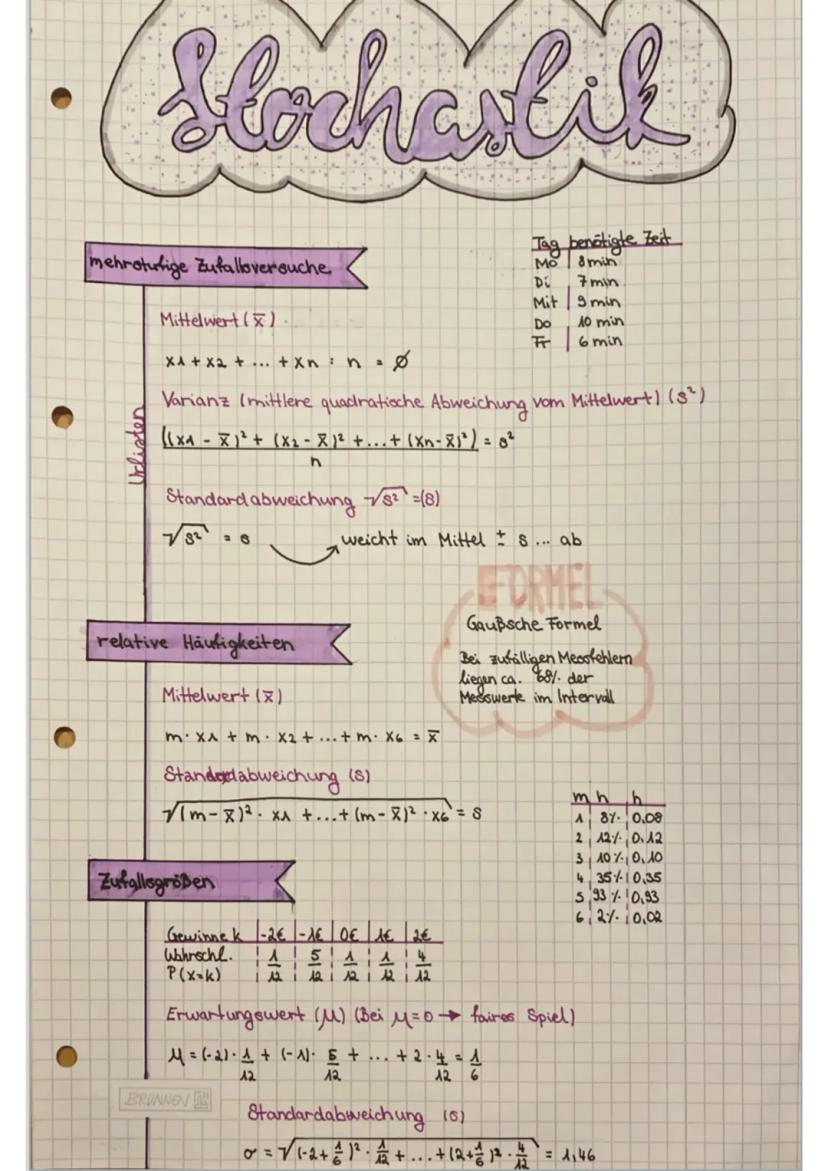 Stochastik
mehrstufige Zufallsversuche
Tag benötigte Zeit
Mo 8 min
Di 7 min
Mit 9 min
Do 10 min
Fr 6 min
Mittelwert (x̅)
x1 + x2 + ... + xn : n = Ø
Varianz (mittlere quadratische Abweichung vom Mittelwert) (s²)
((x1 - x̅)² + (x2 - x̅)² + ... + (xn - x̅)²) = s²
n
Urlisten
Standardabweichung √s² = (s)
√s² = s
weicht im Mittel ± s ... ab
FORMEL
Gaußsche Formel
Bei zufälligen Messfehlern
liegen ca. 68% der
Messwerte im Intervall
relative Häufigkeiten
Mittelwert (x̅)
m · x1 + m · x2 + ... + m · x6 = x̅
Standardabweichung (s)
√(m - x̅)² · x1 + ... + (m - x̅)² · x6 = s
m h h
1 8% 0,08
2 12% 0,12
3 10% 0,10
4 35% 0,35
5 93% 0,93
6 2% 0,02
Zufallsgrößen
Gewinne k -2€ -1€ 0€ 1€ 2€
Wahrschl. 1 5 1 1 4
P(x=k) 12 12 12 12 12
Erwartungswert (μ) (Bei μ=0 → faires Spiel)
μ = (-2) · 1/12 + (-1) · 5/12 + ... + 2 · 4/12 = 1/6
BRUNNEN
Standardabweichung (s)
σ = √(-2 + 1/6)² · 1/12 + ... + (2 + 1/6)² · 4/12 = 1,46